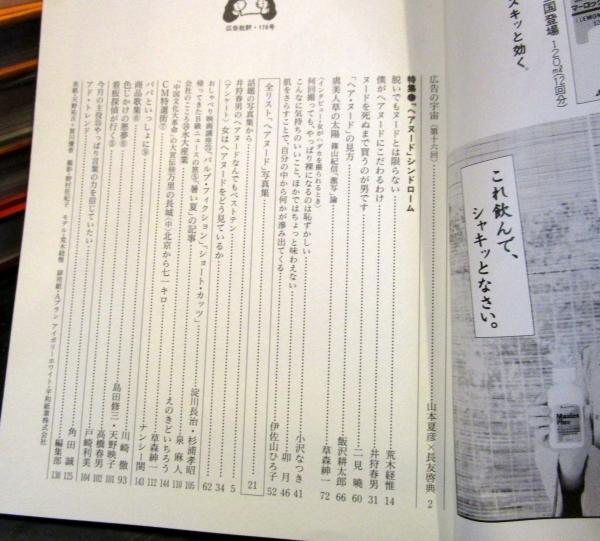 国登場
120ml(12回分)
マーロック
LEMON
スキッと効く。
これ飲んで、
シャキッとなさい。
Maalox
Plus
広告批評・176号
広告の宇宙〔第十六回〕 山本夏彦×長友啓典 2
特集●「ヘアヌード」シンドローム
脱いでもヌードとは限らない 荒木経惟 14
僕がヘアヌードにこだわるわけ 井狩春男 31
ヌードを死ぬまで買うのが男です 二見暁 60
「ヘア・ヌード」の見方 飯沢耕太郎 66
虞美人草の太陽 篠山紀信、激写論 草森紳一 72
〈インタビュー・女がハダカを撮られるとき〉
何回撮っても、やっぱり裸になるのは恥ずかしい 小沢なつき 41
こんなに気持ちのいいこと、ほかではちょっと味わえない 卯月 46
肌をさらすことで、自分の中から何かが滲み出てくる 伊佐山ひろ子 52
全リスト、「ヘアヌード」写真集 21
話題の写真集から 5
井狩春男のヘアヌードなんでもベストテン 34
〈アンケート〉女はヘアヌードをどう見ているか 62
おしゃべり映画講座 「パルプ・フィクション」、「ショート・カッツ」 淀川長治・杉浦孝昭 105
帰ってきたB級ニュースの旅 「暑い夏」の記事 泉麻人 110
会社のこころ 大産業 えのきどいちろう 134
「中国文化大革命」の大宣伝 万里の長城(中)北京から七一キロ 草森紳一 144
CM特選街⑦ ナンシー関 143
パパといっしょに⑨
商品歌集⑥ 川崎徹 93
色じかけの悪夢⑥ 島田修三・天野映子 112
看板探偵が行く⑤ 高橋春男 101
今月の主役 やっぱり言葉の力を信じていたい 戸崎利美 102
アド・トレンド 角田誠 104
編集部 125
138
表紙・天野祐吉+質田優香 撮影・野村佐紀子 モデル・荒木経惟 扉用紙・Aプラン アイボリーホワイト・平和紙業株式会社